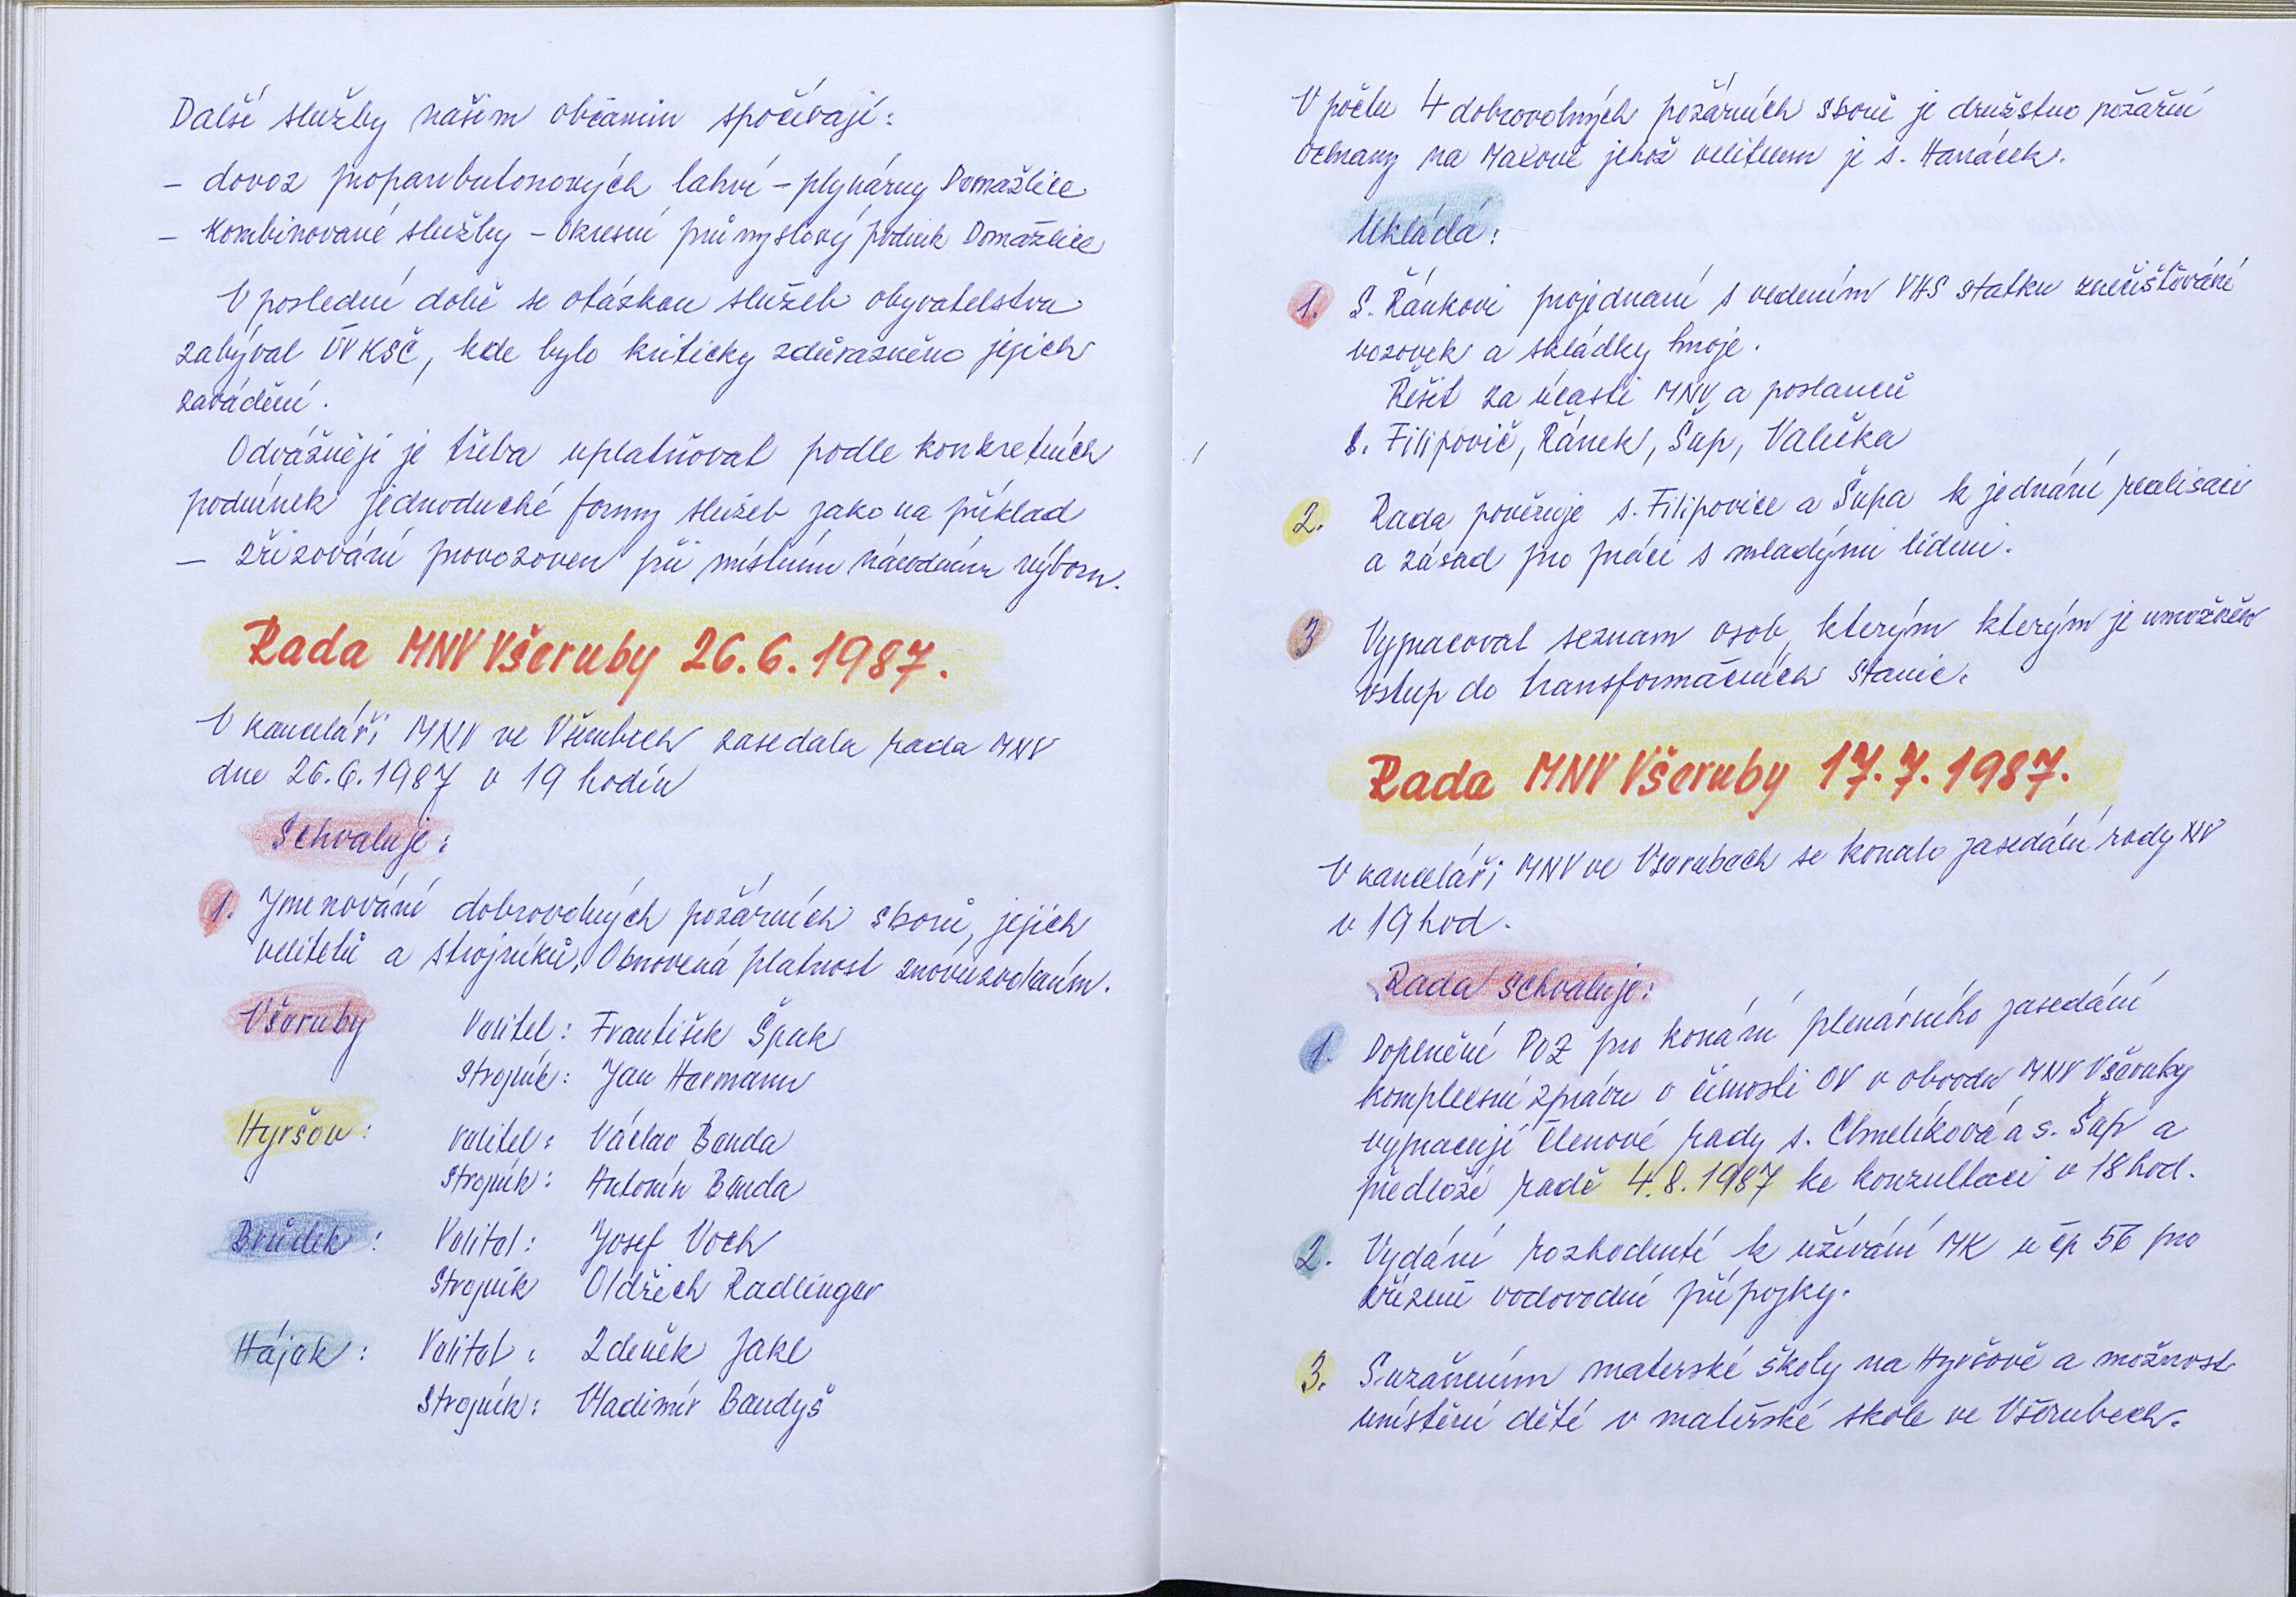 Další služby našim občanům spočívají:
– dovoz propanbutonových lahví – plynárny Domažlice
– Kombinované služby – Okresní průmyslový podnik Domažlice
V poslední době se otázkou služeb obyvatelstvu
zabýval ÚV KSČ, kde bylo kriticky zdůrazněno jejich
zavádění.
Odvážněji je třeba uplatňovat podle konkretních
podmínek jednoduché formy služeb jako na příklad
– zřizování provozoven při místním národním výboru.
Rada MNV Všeruby 26.6.1987.
V kanceláři MNV ve Všerubech zasedala rada MNV
dne 26.6.1987 v 19 hodin
Schvaluje:
1. Jmenování dobrovolných požárních sborů, jejich
velitelů a strojníků. Obnovená platnost znovuzvolením.
Všeruby Velitel: František Špak
Strojník: Jan Harmann
Hyršov: velitel: Václav Benda
Strojník: Antonín Benda
Brůdek: Velitel: Josef Voch
Strojník Oldřich Radlinger
Hájek: Velitel: Zdeněk Jakl
Strojník: Vladimír Bandyš
V počtu 4 dobrovolných požárních sborů je družstvo požární
ochrany na Maxově jehož velitelem je s. Hanáček.
Ukládá:
1. S. Řánkovi projednaní s vedením VHS statku znečišťování
vozovek a skládky hnoje.
Řešit za účasti MNV a poslanců
s. Filipovič, Řánek, Šup, Valečka
2. Rada pověřuje s. Filipoviče a Šupa k jednání realisaci
a zásad pro práci s mladými lidmi.
3 Vypracovat seznam osob, kterým kterým je umožněn
vstup do transformačních stanic.
Rada MNV Všeruby 17.7.1987.
V kanceláři MNV ve Všerubech se konalo zasedání rady NV
v 19 hod.
Rada schvaluje:
1. Doplnění POZ pro konání plenárního zasedání
komplexní zprávu o činosti OV v obvodu MNV Všeruby
vypracují členové rady s. Chmelíková a s. Šup a
předloží radě 4.8.1987 ke konzultaci v 18 hod.
2. Vydání rozhodnutí k užívání MK u čp 56 pro
zřízení vodovodní přípojky.
3. S uzavřením materské školy na Hyršově a možnost
umístění dětí v mateřské škole ve Všerubech.